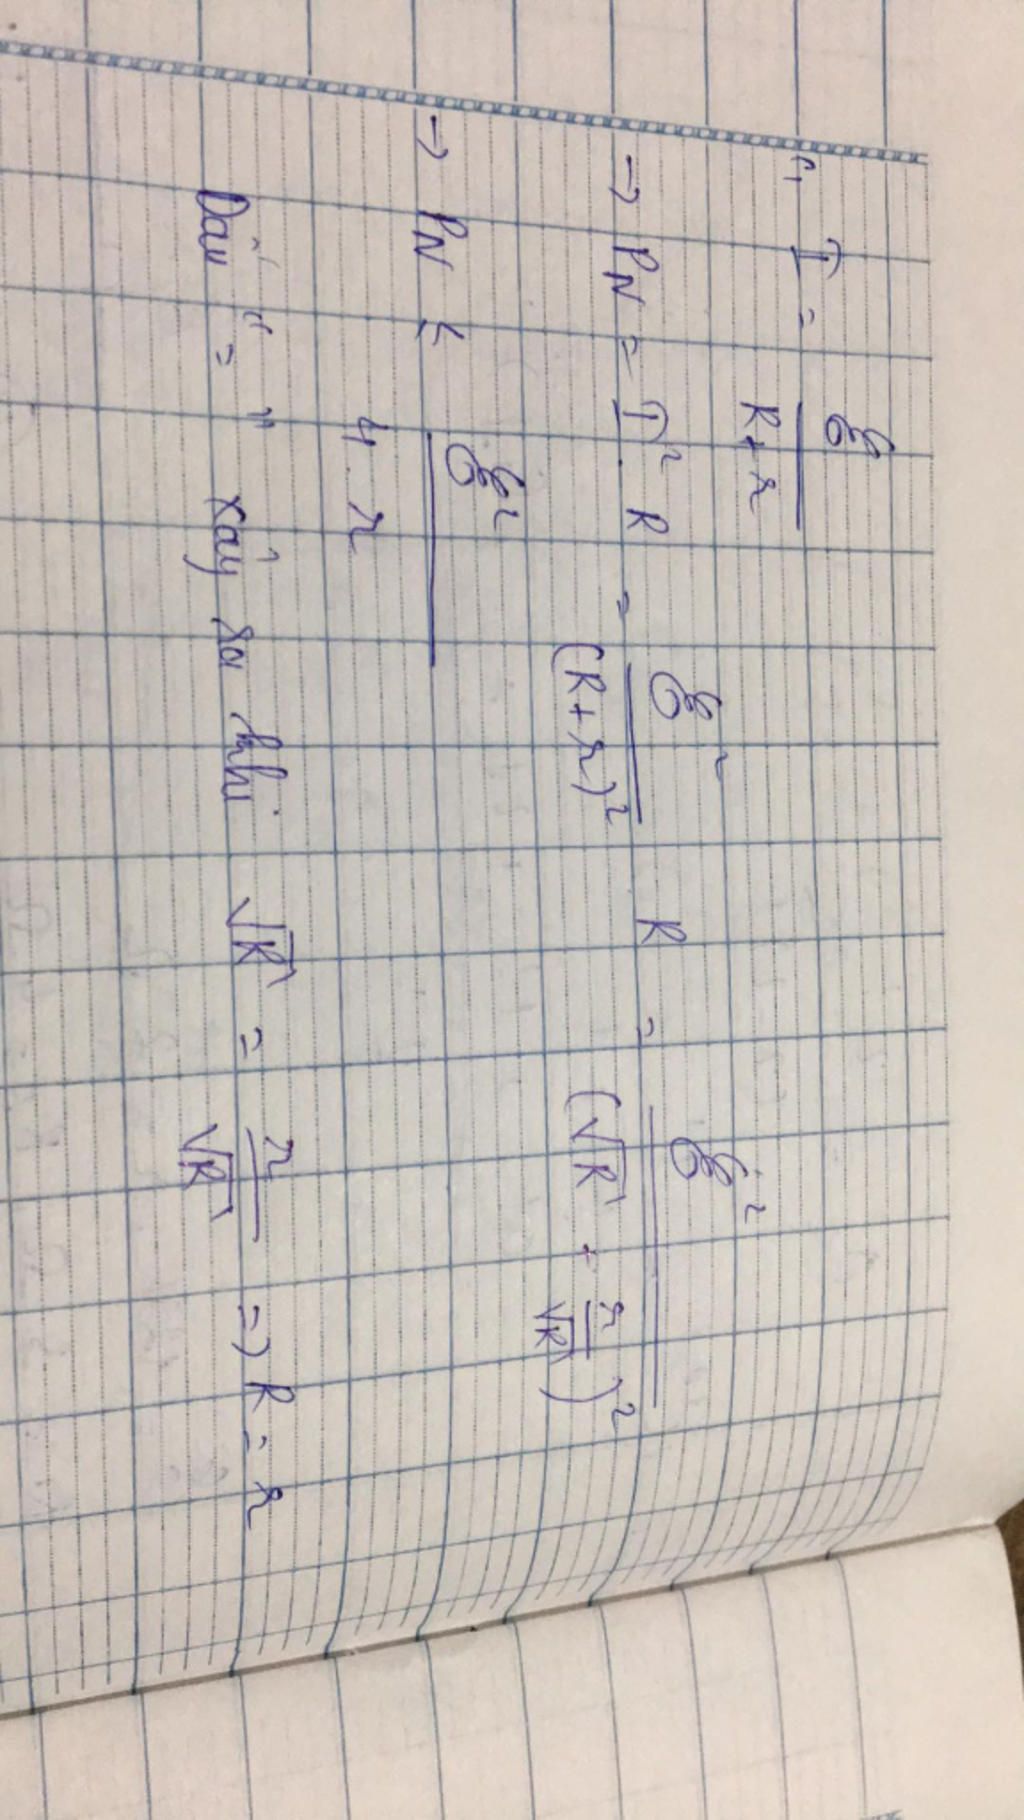 I = ℰ / (R + r)
→ P_N = I². R = ℰ² / (R + r)² R = ℰ² / (√R + r/√R)²
→ P_N ≤ ℰ² / 4.r
Dấu " = " xảy ra khi √R = r/√R => R = r